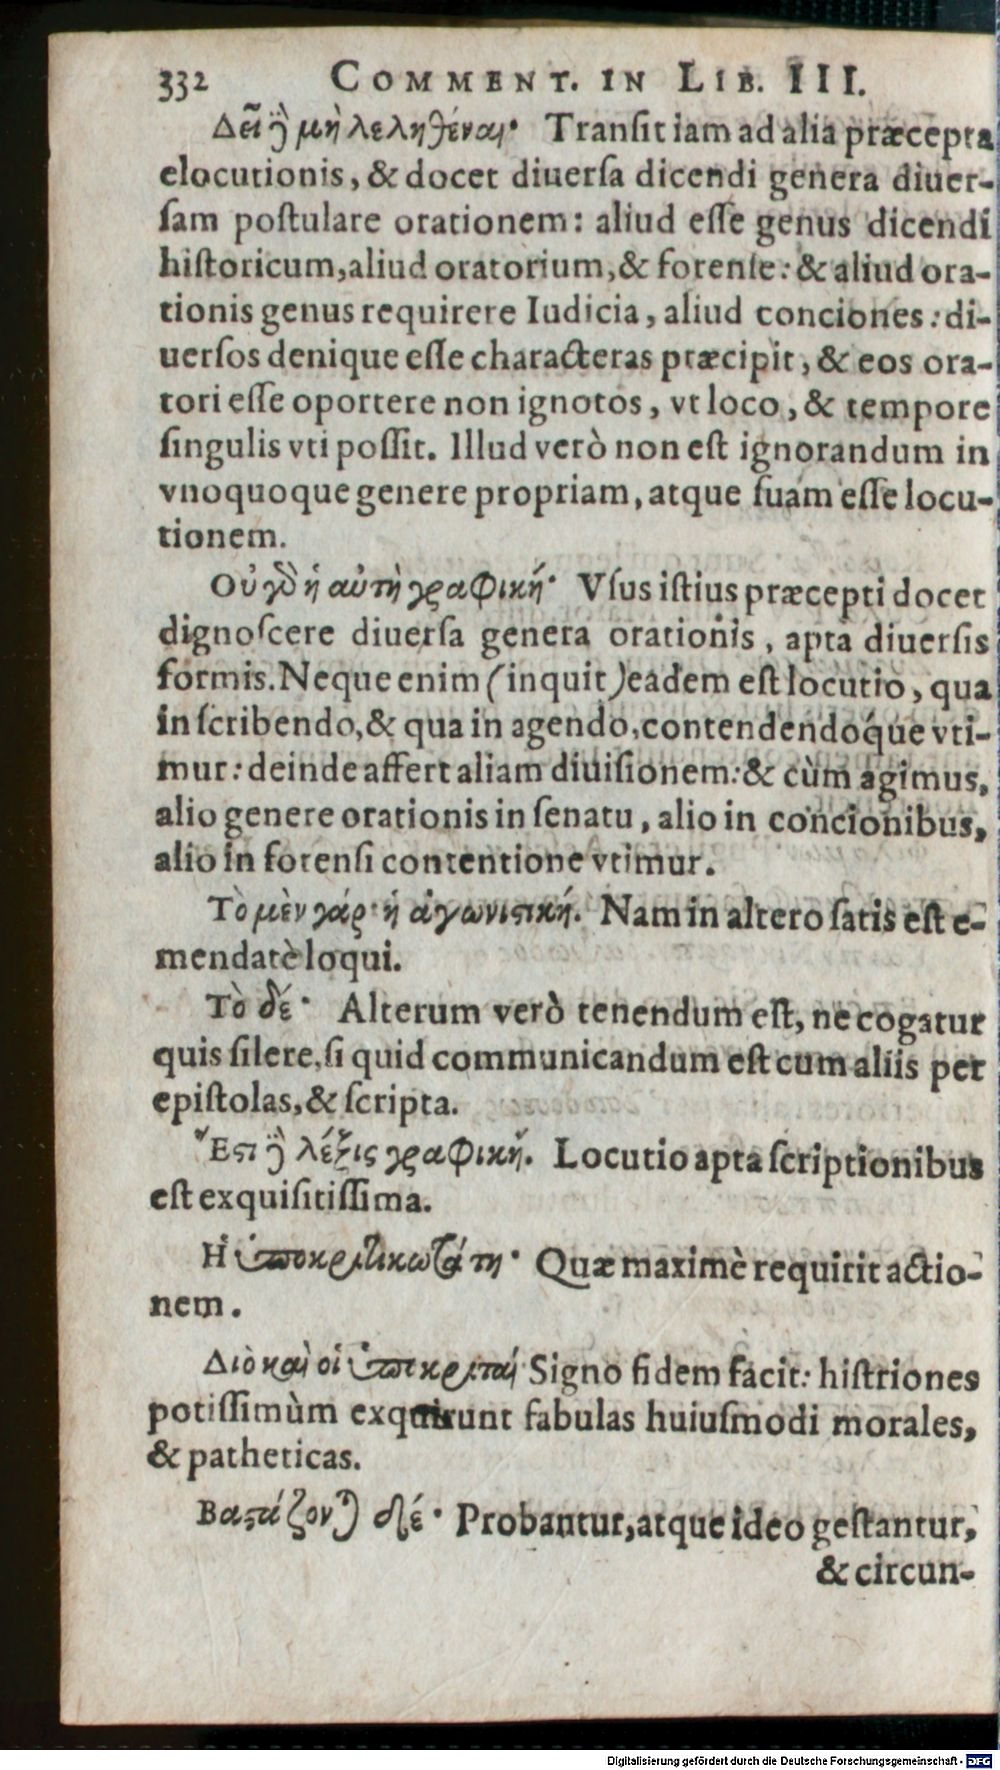 332 COMMENT. IN LIB. III.
Δεῖ δὲ μὴ λεληθέναι· Transit iam ad alia præcepta
elocutionis, & docet diuersa dicendi genera diuer-
sam postulare orationem: aliud esse genus dicendi
historicum, aliud oratorium, & forense: & aliud ora-
tionis genus requirere Iudicia, aliud conciones: di-
uersos denique esse characteras præcipit, & eos ora-
tori esse oportere non ignotos, vt loco, & tempore
singulis vti possit. Illud verò non est ignorandum in
vnoquoque genere propriam, atque suam esse locu-
tionem.
Οὐ γὰρ ἡ αὐτὴ γραφικὴ· Vsus istius præcepti docet
dignoscere diuersa genera orationis, apta diuersis
formis. Neque enim (inquit) eadem est locutio, qua
in scribendo, & qua in agendo, contendendóque vti-
mur: deinde affert aliam diuisionem: & cùm agimus,
alio genere orationis in senatu, alio in concionibus,
alio in forensi contentione vtimur.
Τὸ μὲν γάρ· ἡ ἀγωνιστική. Nam in altero satis est e-
mendatè loqui.
Τὸ δέ· Alterum verò tenendum est, ne cogatur
quis silere, si quid communicandum est cum aliis per
epistolas, & scripta.
Ἔστι δὲ λέξις γραφική. Locutio apta scriptionibus
est exquisitissima.
Ἡ ὑποκριτικωτάτη· Quæ maximè requirit actio-
nem.
Διὸ καὶ οἱ ὑποκριταί Signo fidem facit: histriones
potissimùm exquirunt fabulas huiusmodi morales,
& patheticas.
Βαστάζονται δέ· Probantur, atque ideo gestantur,
& circun-
Digitalisierung gefördert durch die Deutsche Forschungsgemeinschaft · DFG